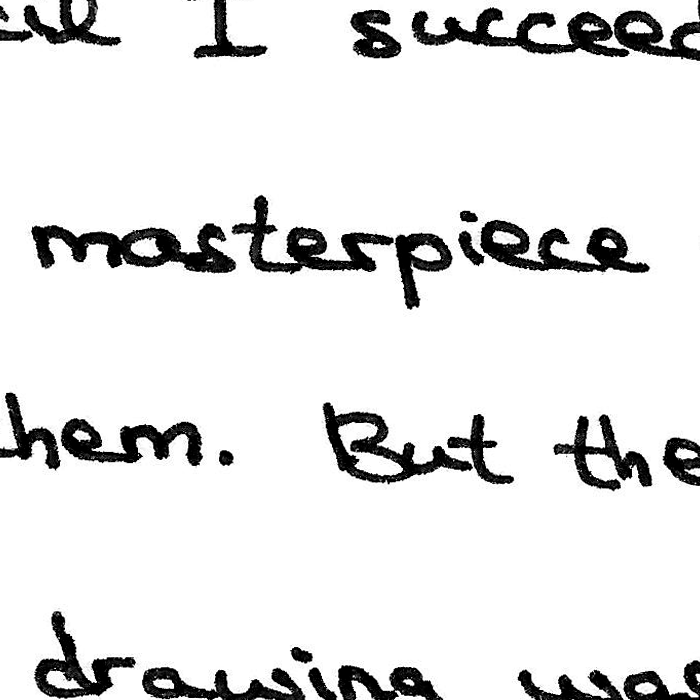 I succeed
masterpiece
hem. But the
drawing was